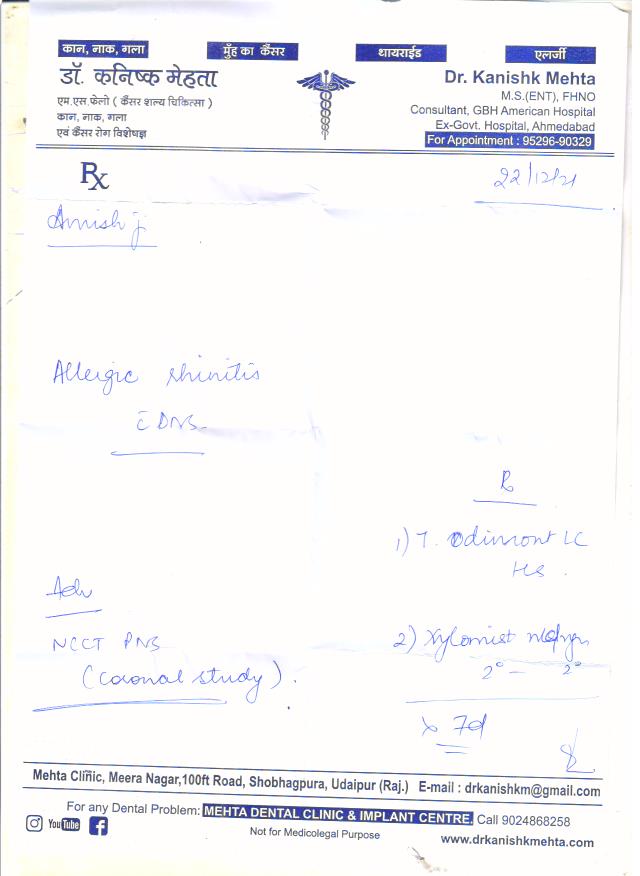 कान, नाक, गला
मुँह का कैंसर
थायराईड
एलर्जी
डॉ. कनिष्क मेहता
एम.एस.फेलो ( कैंसर शल्य चिकित्सा )
कान, नाक, गला
एवं कैंसर रोग विशेषज्ञ
Dr. Kanishk Mehta
M.S.(ENT), FHNO
Consultant, GBH American Hospital
Ex-Govt. Hospital, Ahmedabad
For Appointment : 95296-90329
Rx
22/12/21
Amish j
Allergic rhinitis
c̄ DNS
R
1) T. Odimont LC
HS.
Adv
NCCT PNS
(coronal study).
2) Xylomist
2° — 2°
x 7d
Mehta Clinic, Meera Nagar,100ft Road, Shobhagpura, Udaipur (Raj.) E-mail : drkanishkm@gmail.com
For any Dental Problem: MEHTA DENTAL CLINIC & IMPLANT CENTRE. Call 9024868258
YouTube
Not for Medicolegal Purpose
www.drkanishkmehta.com